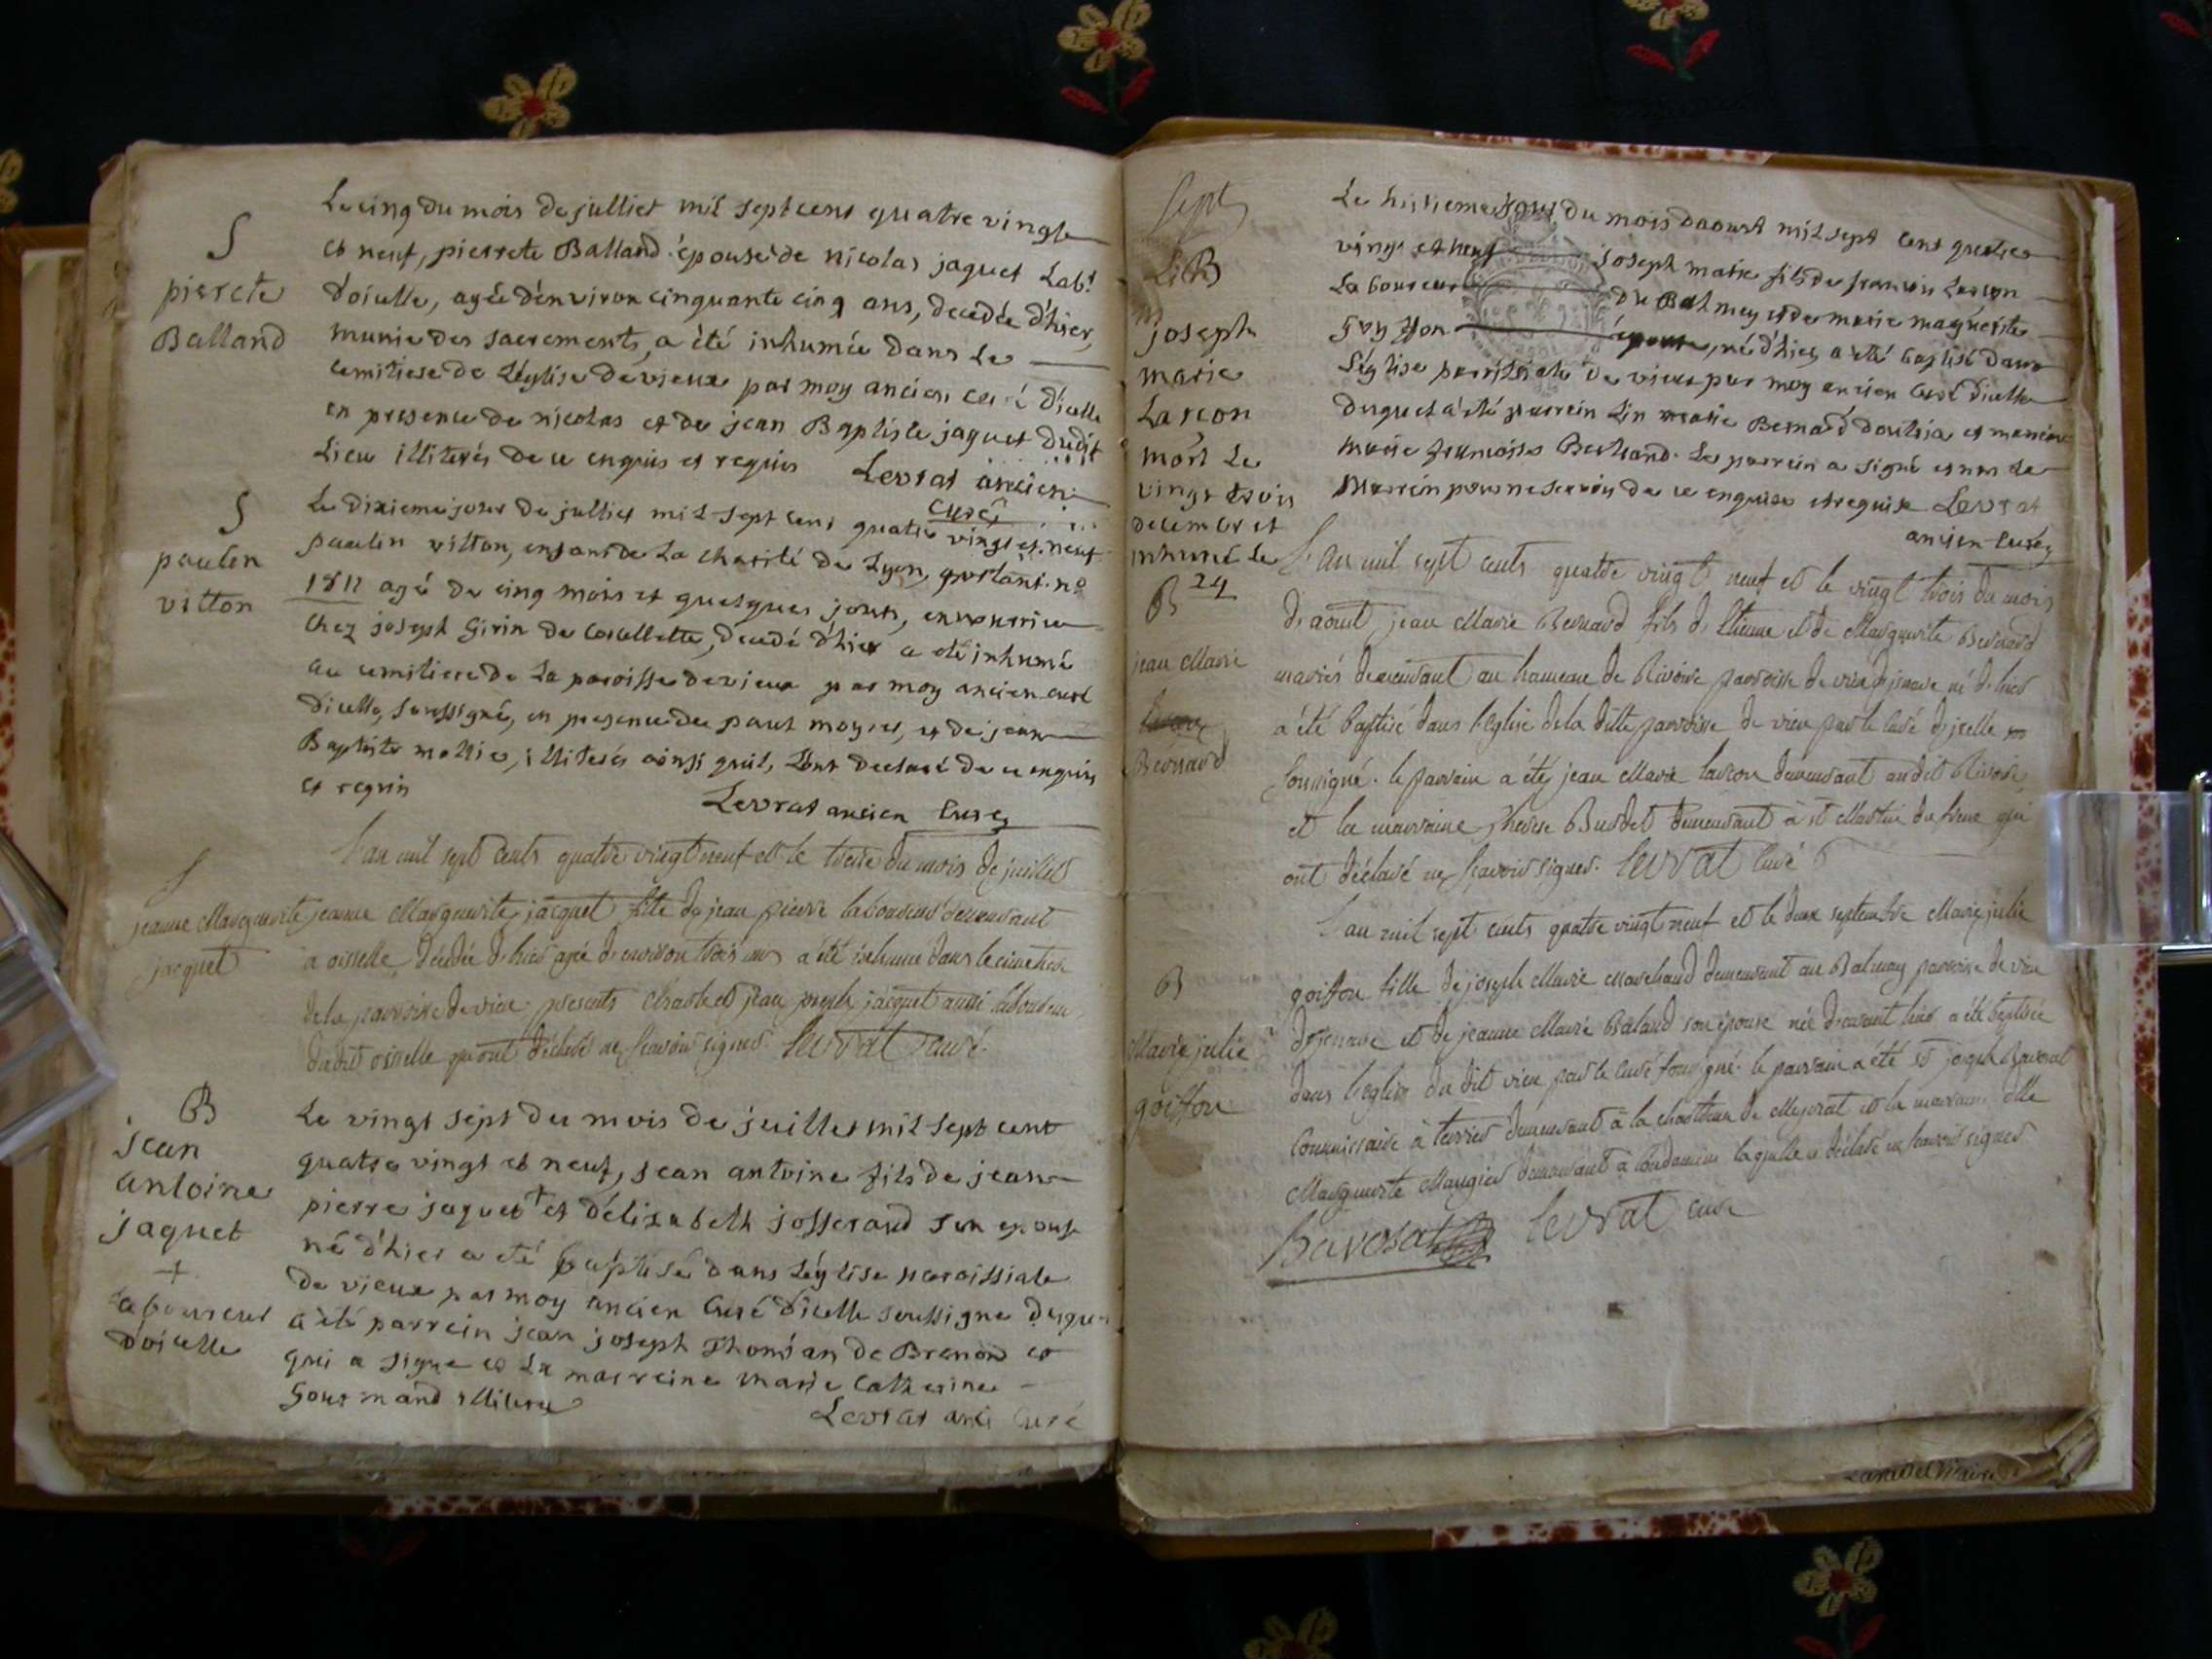 S
pierrete
Balland
Le cinq du mois de julliet mil sept cens quatre vingt
et neuf, pierrete Balland épouse de nicolas jaquet Lab.r
d'oiselle, agée d'environ cinquante cinq ans, decedée d'hier,
munie des sacrements, a été inhumée dans Le
cemitiere de Léglise de vieux par moy ancien curé d'icelle
en presence de nicolas et de jean Baptiste jaquet dudit
Lieu illiterés de ce enquis et requis Levrat ancien
curé
S
paulin
vitton
Le dixieme jour de julliet mil sept cens quatre vingt et neuf
paulin vitton, enfant de La charité de Lyon, portant n.o
agé de cinq mois et quelques jours, en nourrice
chez joseph Girin de decedé d'hier a eté inhumé
au cemitiere de La paroisse de vieux par moy ancien curé
dicelle, soussigné, en presence de paul et de jean
Baptiste illiterés ainsi quil, Lont declaré de ce enquis
et requis
Levrat ancien Curé
S
jeanne Marguerite
jacquet
L'an mil sept cents quatre vingt neuf et le treize du mois de juillet
jeanne Marguerite jacquet fille de jean pierre laboureur demeurant
a oisselle décédée d'hier agée d'environ trois ans a été inhumée dans le cimetiere
de la parroisse de vieu presents Charle et jean joseph jacquet aussi laboureur
dudit oisselle qui ont déclaré ne sçavoir signer levrat curé
B
jean
antoine
jaquet
+
Laboureur
doiselle
Le vingt sept du mois de juillet mil sept cent
quatre vingt et neuf, jean antoine fils de jean
pierre jaquet + et d'élizabeth josserand son epouse
né d'hier a eté baptisé dans Léglise paroissiale
de vieux par moy ancien Curé dicelle soussigné duquel
a été parrein jean joseph de Brenod et
qui a signé et La marreine marie Catherine
Gourmand illiteree
Levrat anci Curé
Sept
B
joseph
marie
Larcon
mort Le
vingt trois
decembre et
inhumé Le
24
Le huitieme jour du mois daoust mil sept cent quatre
vingt et neuf joseph marie fils de francois Larcon
Laboureur du Balmey et de marie marguerite
Goyffon épouse, né d'hier, a été baptisé dans
Léglise parrissiale de vieux par moy ancien curé dicelle
duquel a été parrein marie Bernard et marreine
marie francoise Bertrand. Le parrein a signé et non La
marrein pour ne sçavoir de ce enquise et requise Levrat
ancien Curé
B
jean Marie
Bernard
L'an mil sept cents quatre vingt neuf et le vingt trois du mois
d'aout jean Marie Bernard fils d'Etienne et de Marguerite Bernard
mariés demeurant au hameau de Rivoire parroisse de vieu d'jzenave né d'hier
a été baptisé dans l'eglise de la ditte parroisse de vieu par le curé d'jcelle
soussigné. le parrain a été jean Marie larcon demeurant audit Rivoire
et la marraine Therese Burdet demeurant à st Martin du frene qui
ont déclaré ne sçavoir signer. levrat curé
B
Marie julie
goiffon
L'an mil sept cents quatre vingt neuf et le deux septembre Marie julie
goiffon fille de joseph Marie Marechand demeurant au Balmay parroisse de vieu
d'jzenave et de jeanne Marie Baland son épouse née d'avant hier a été baptisée
dans l'eglise du dit vieu par le curé soussigné. le parrain a été sr joseph Bavorat
Commissaire à terrier demeurant à la chartreuse de Meyriat et la marraine dlle
Marguerite Maugier demeurant à Condamine laquelle a déclaré ne sçavoir signer
Bavorat levrat curé